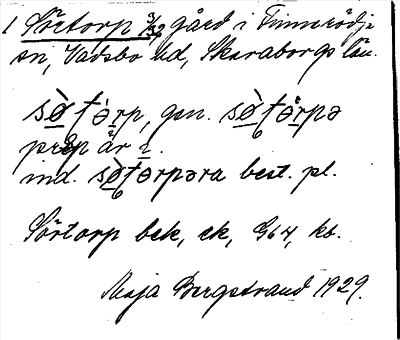 1 Sörtorp 3/4, gård i Finnerödja
sn, Vadsbo hd, Skaraborgs län.
sø̀tɘrp, gen. sø̀tɘrpə
prep är i.
ind. sø̀tərpəra best. pl.
Sörtorp bek, ek, G64, kb.
Maja Bergstrand 1929.